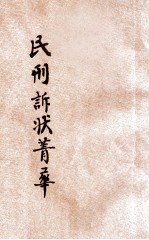 民刑訴状菁華